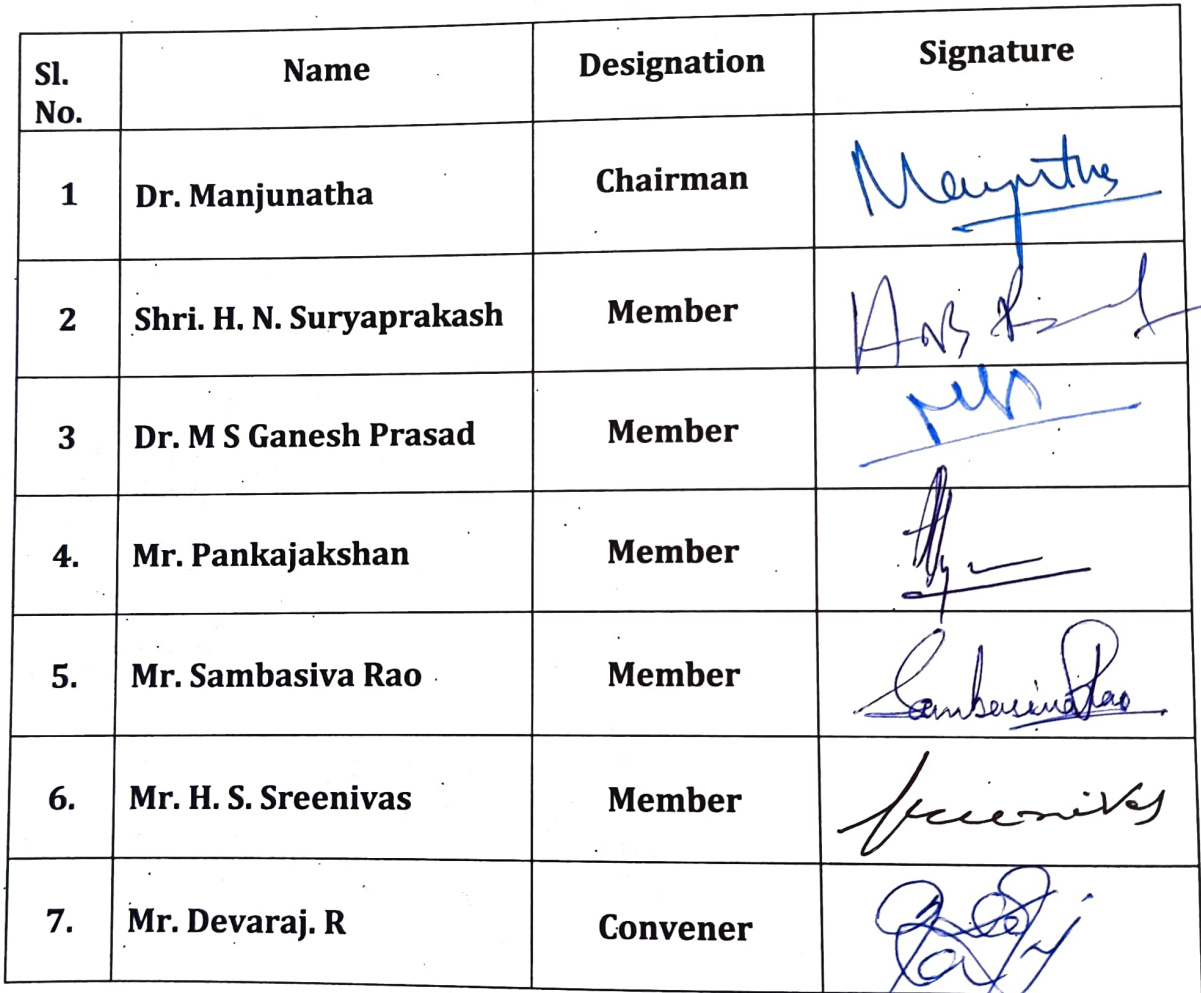 Sl. No. Name Designation Signature
1 Dr. Manjunatha Chairman Manjuntha
2 Shri. H. N. Suryaprakash Member
3 Dr. M S Ganesh Prasad Member
4. Mr. Pankajakshan Member
5. Mr. Sambasiva Rao Member SambasivaRao
6. Mr. H. S. Sreenivas Member Sreenivas
7. Mr. Devaraj. R Convener